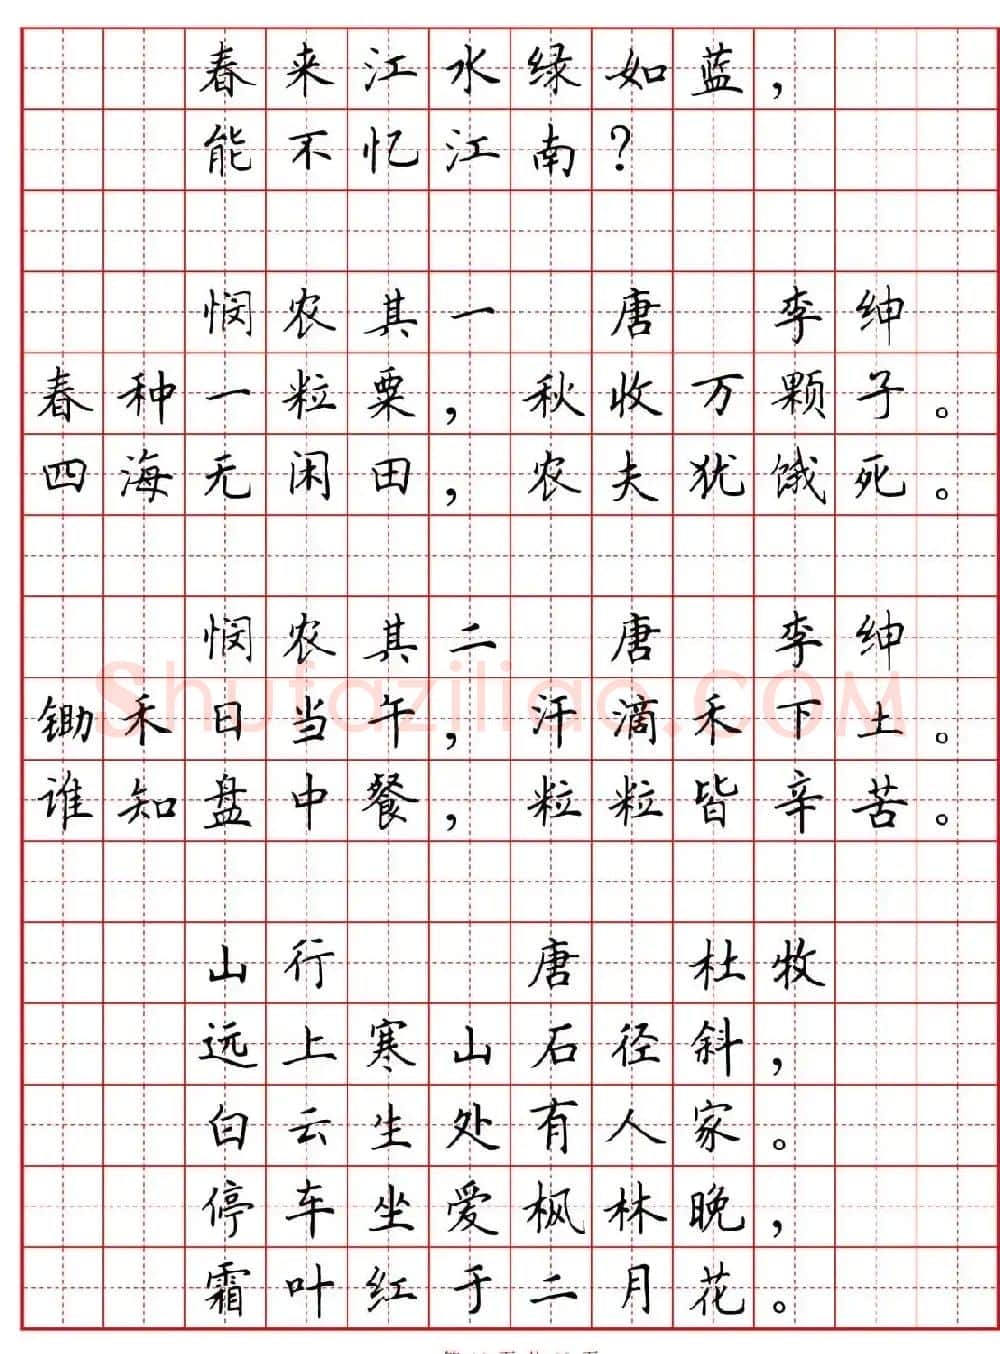 春来江水绿如蓝，
能不忆江南？
悯农其一 唐 李绅
春种一粒粟，秋收万颗子。
四海无闲田，农夫犹饿死。
悯农其二 唐 李绅
Shufaziliao.COM
锄禾日当午，汗滴禾下土。
谁知盘中餐，粒粒皆辛苦。
山行 唐 杜牧
远上寒山石径斜，
白云生处有人家。
停车坐爱枫林晚，
霜叶红于二月花。